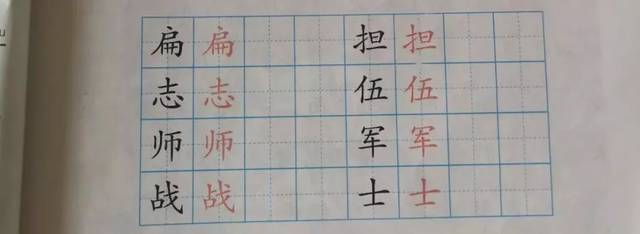 扁 扁 担 担
志 志 伍 伍
师 师 军 军
战 战 士 士